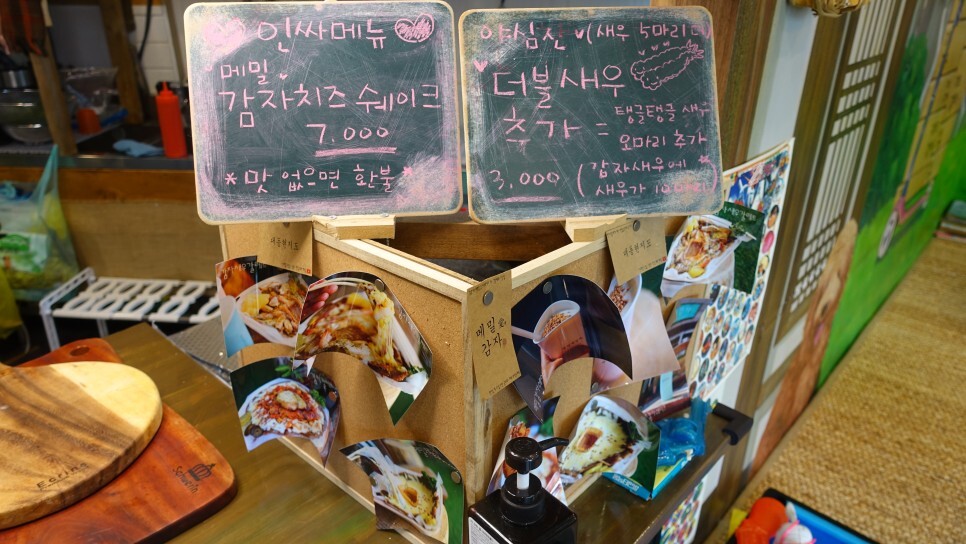 인싸메뉴
메밀
감자치즈 쉐이크
7.000
*맛 없으면 환불*
양심선 (새우 5마리
더블새우
추가 =
탱글탱글 새우
오마리 추가
3.000
(감자새우에
새우가 10마리)
메밀
감자